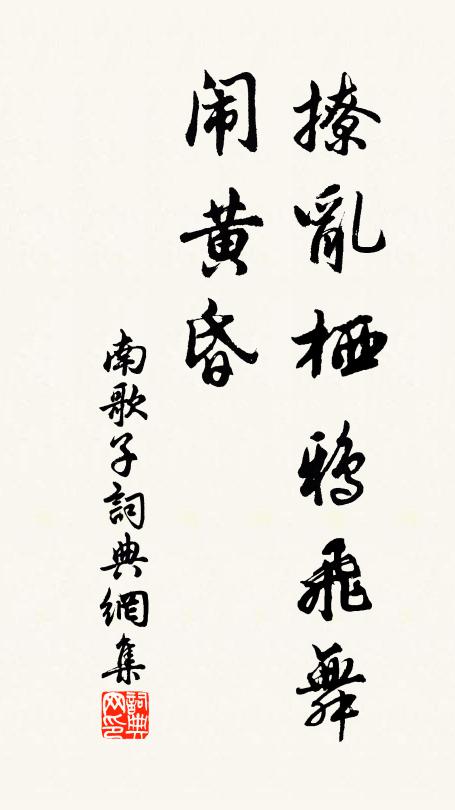 撩亂栖鴉飛舞
闹黄昏
南歌子詞典網集
詞典网印